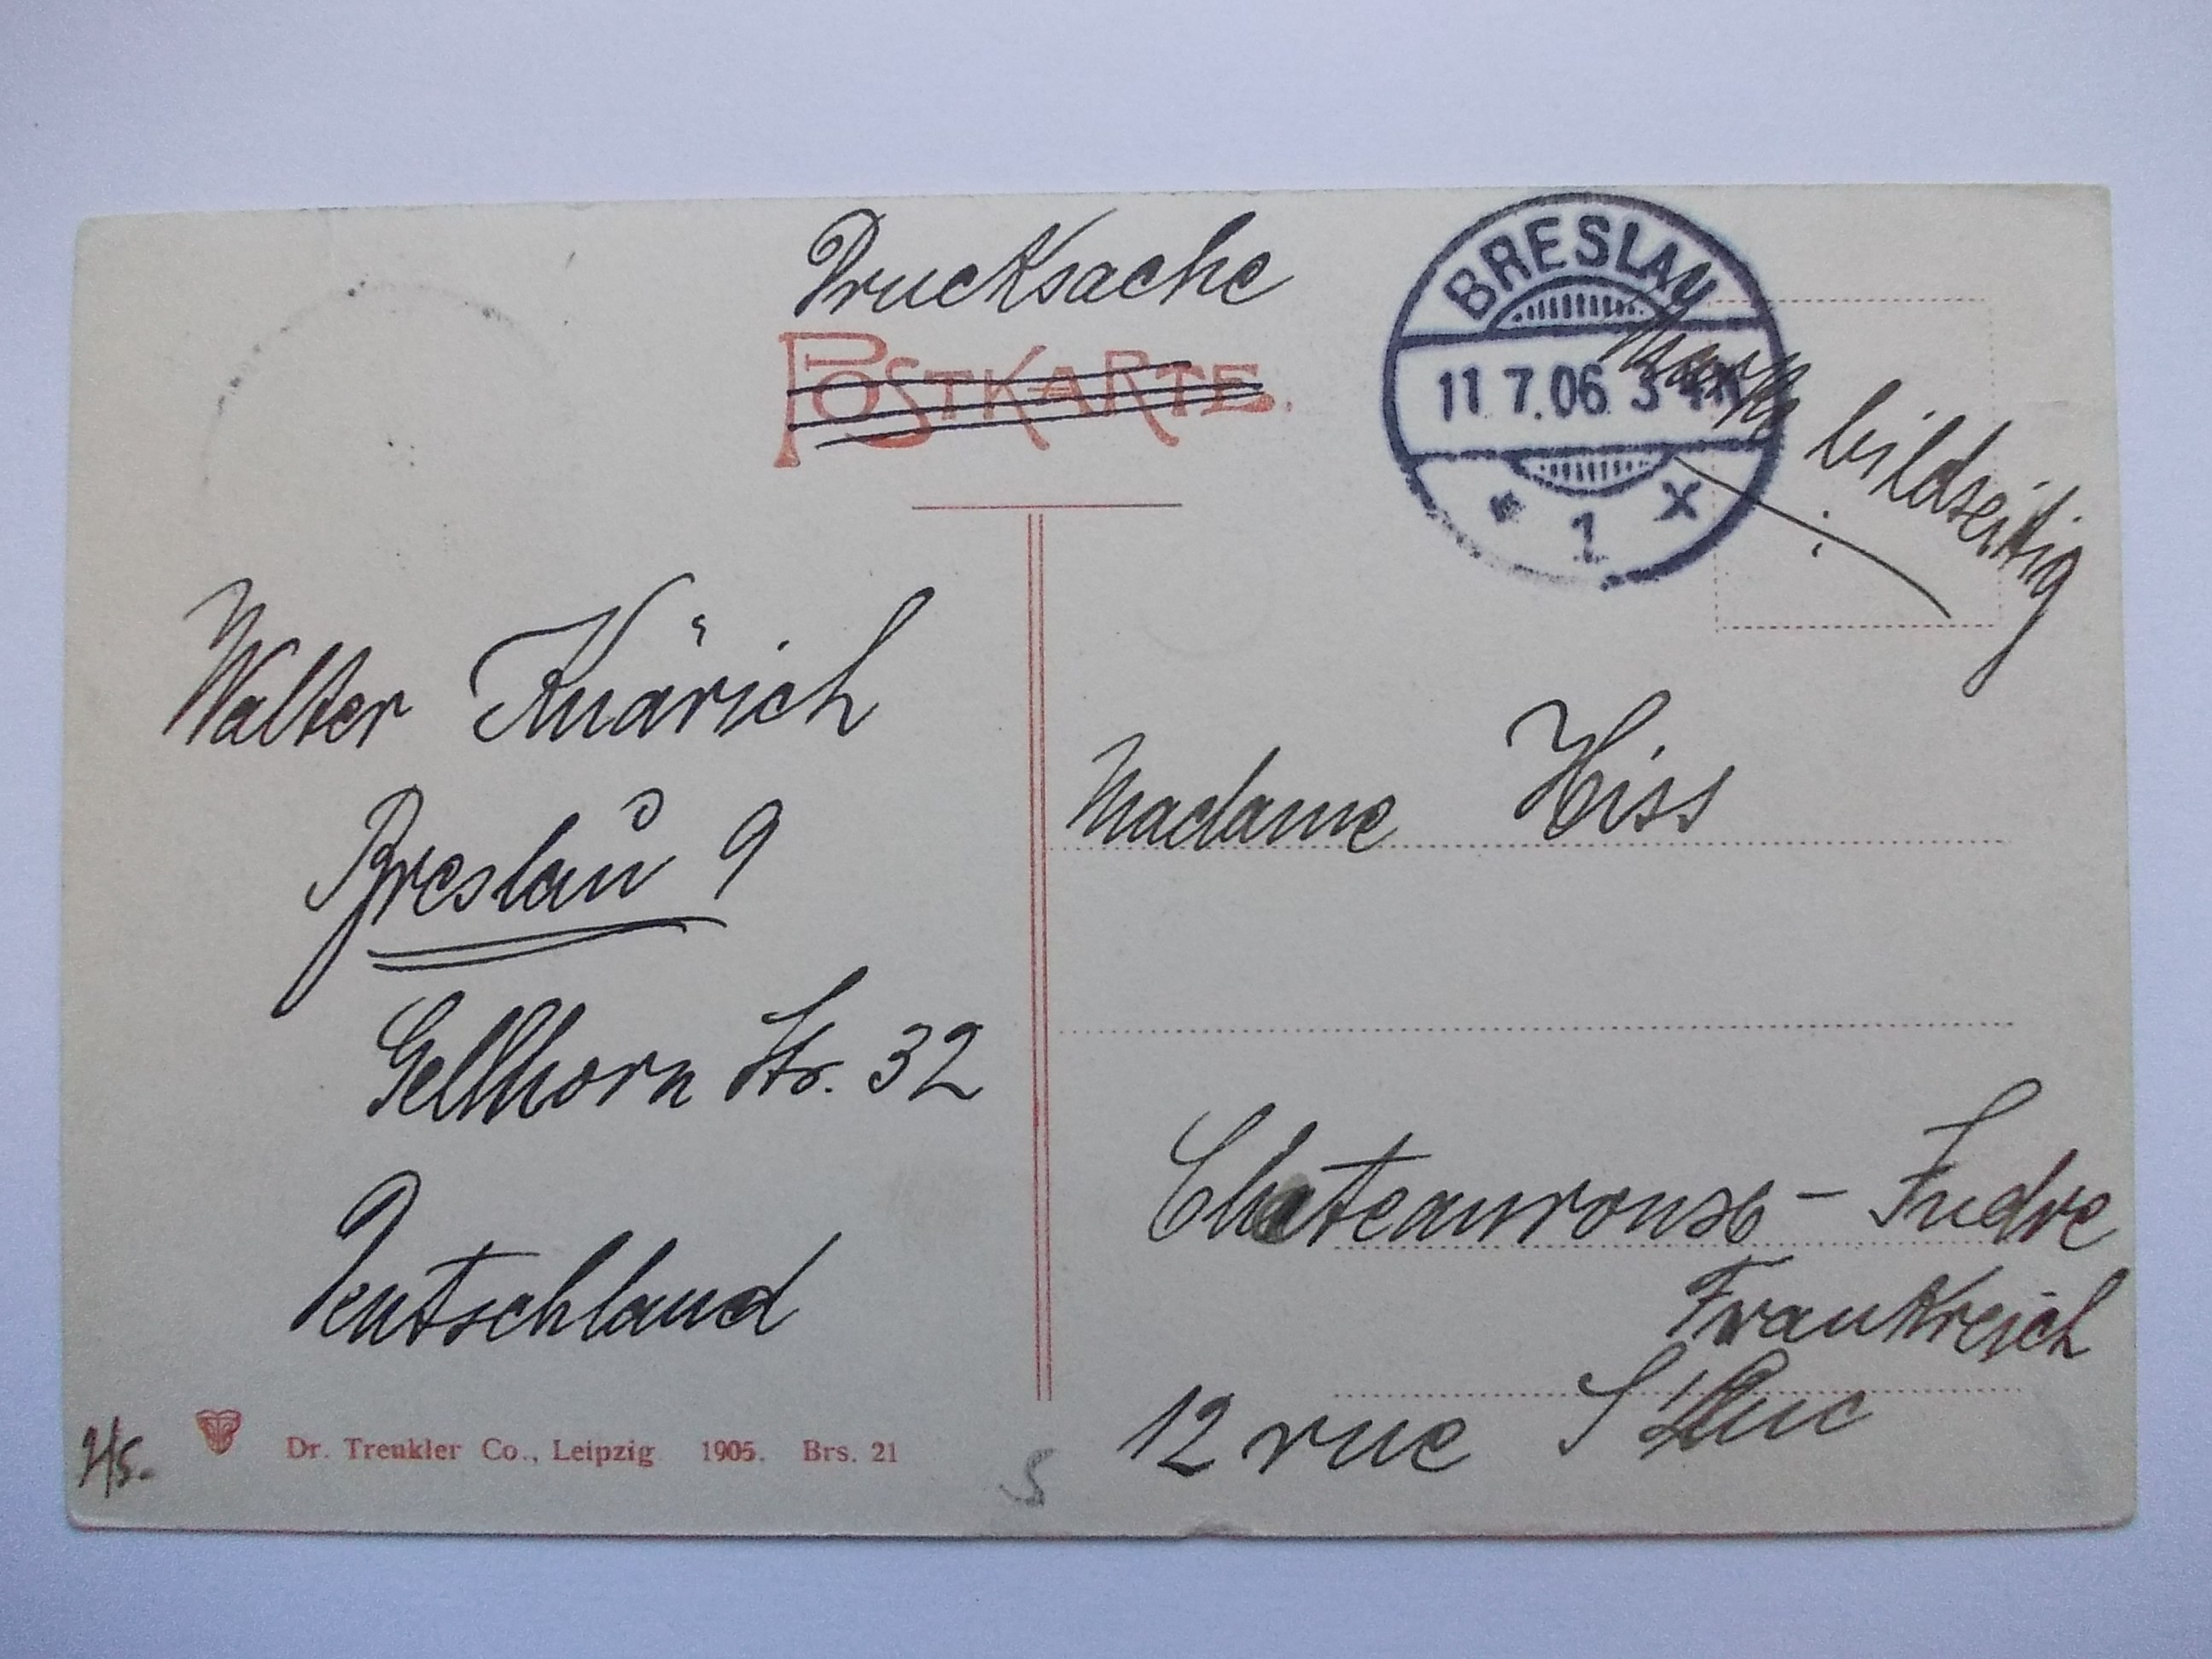 Drucksache
POSTKARTE.
BRESLAU
11 7.06 3-4N
* 1 x
Marke bildseitig
Walter Knärich
Breslau 9
Gellhorn Str. 32
Deutschland
Madame Hiss
Chateauroux - Indre
Frankreich
12 rue S Luc
Dr. Trenkler Co., Leipzig 1905. Brs. 21
5